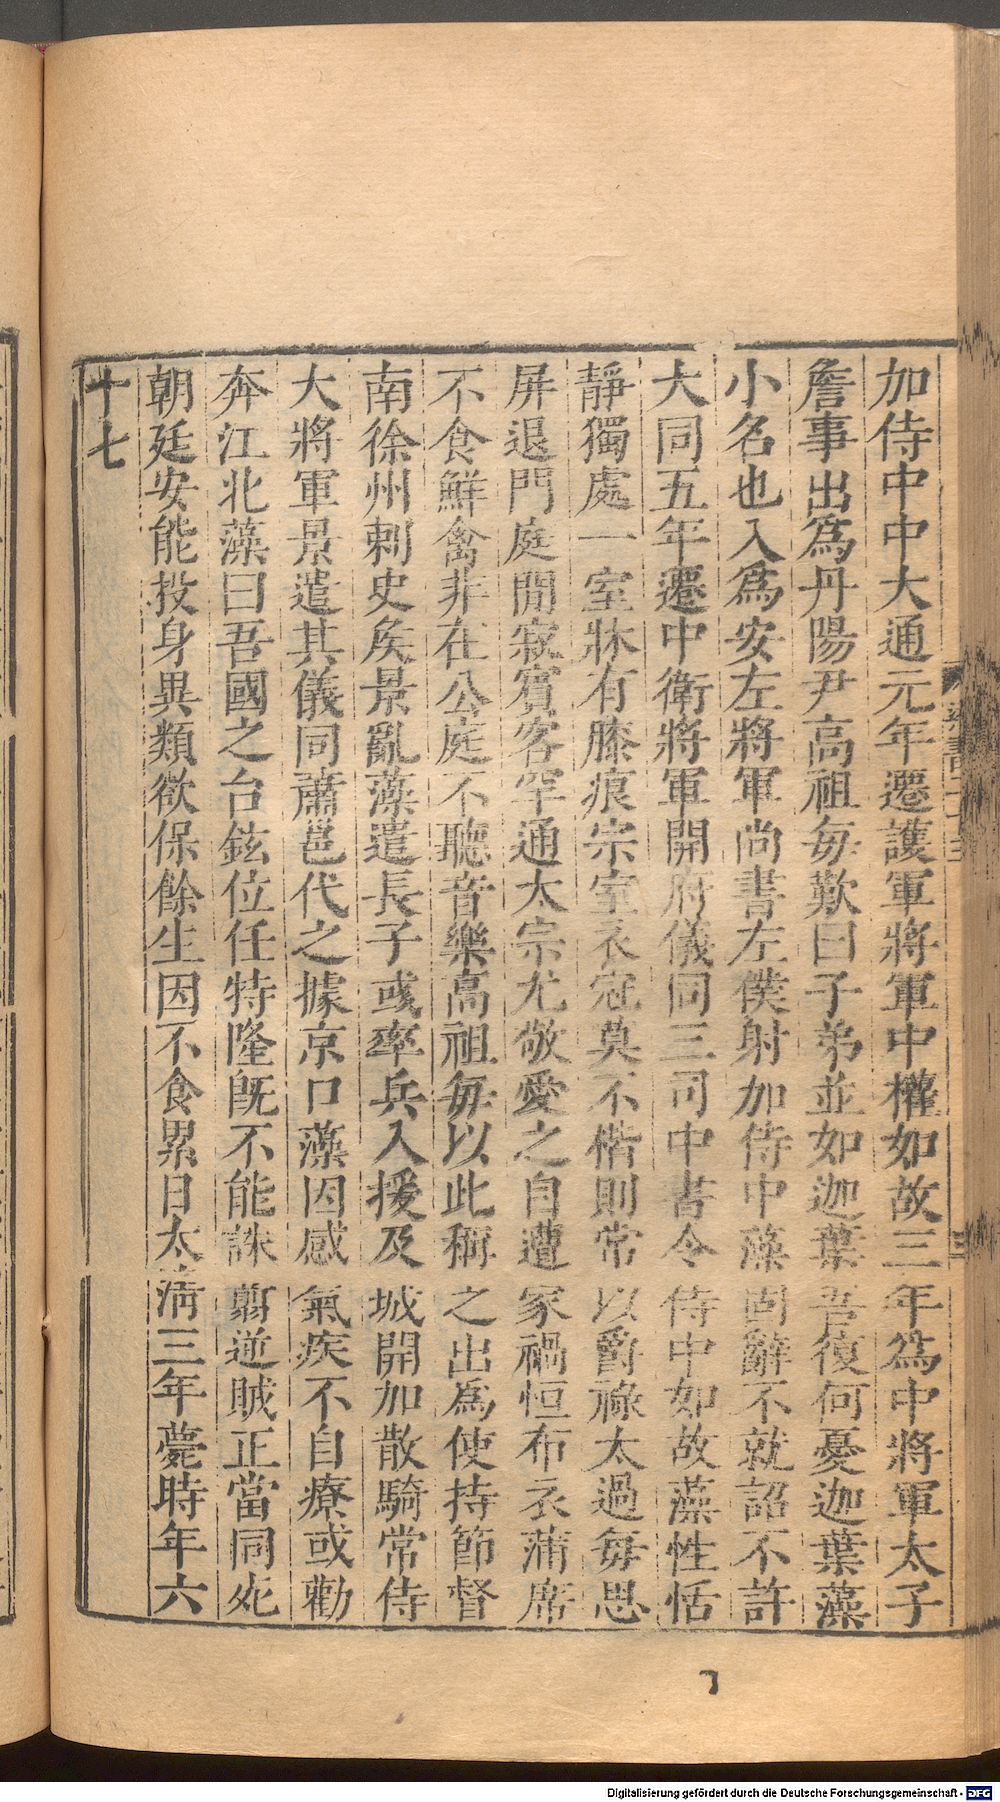 加侍中中大通元年遷護軍將軍中權如故三年爲中將軍太子
詹事出爲丹陽尹高祖每歎曰子弟並如迦葉吾復何憂迦葉藻
小名也入爲安左將軍尚書左僕射加侍中藻固辭不就詔不許
大同五年遷中衛將軍開府儀同三司中書令侍中如故藻性恬
靜獨處一室牀有膝痕宗室衣冠莫不楷則常以爵祿太過每思
屏退門庭閒寂賓客罕通太宗尤敬愛之自遭家禍恒布衣蒲席
不食鮮禽非在公庭不聽音樂高祖每以此稱之出爲使持節督
南徐州刺史矦景亂藻遣長子彧率兵入援及城開加散騎常侍
大將軍景遣其儀同蕭邕代之據京口藻因感氣疾不自療或勸
奔江北藻曰吾國之台鉉位任特隆旣不能誅翦逆賊正當同死
朝廷安能投身異類欲保餘生因不食累日太淸三年薨時年六
十七
Digitalisierung gefördert durch die Deutsche Forschungsgemeinschaft - DFG